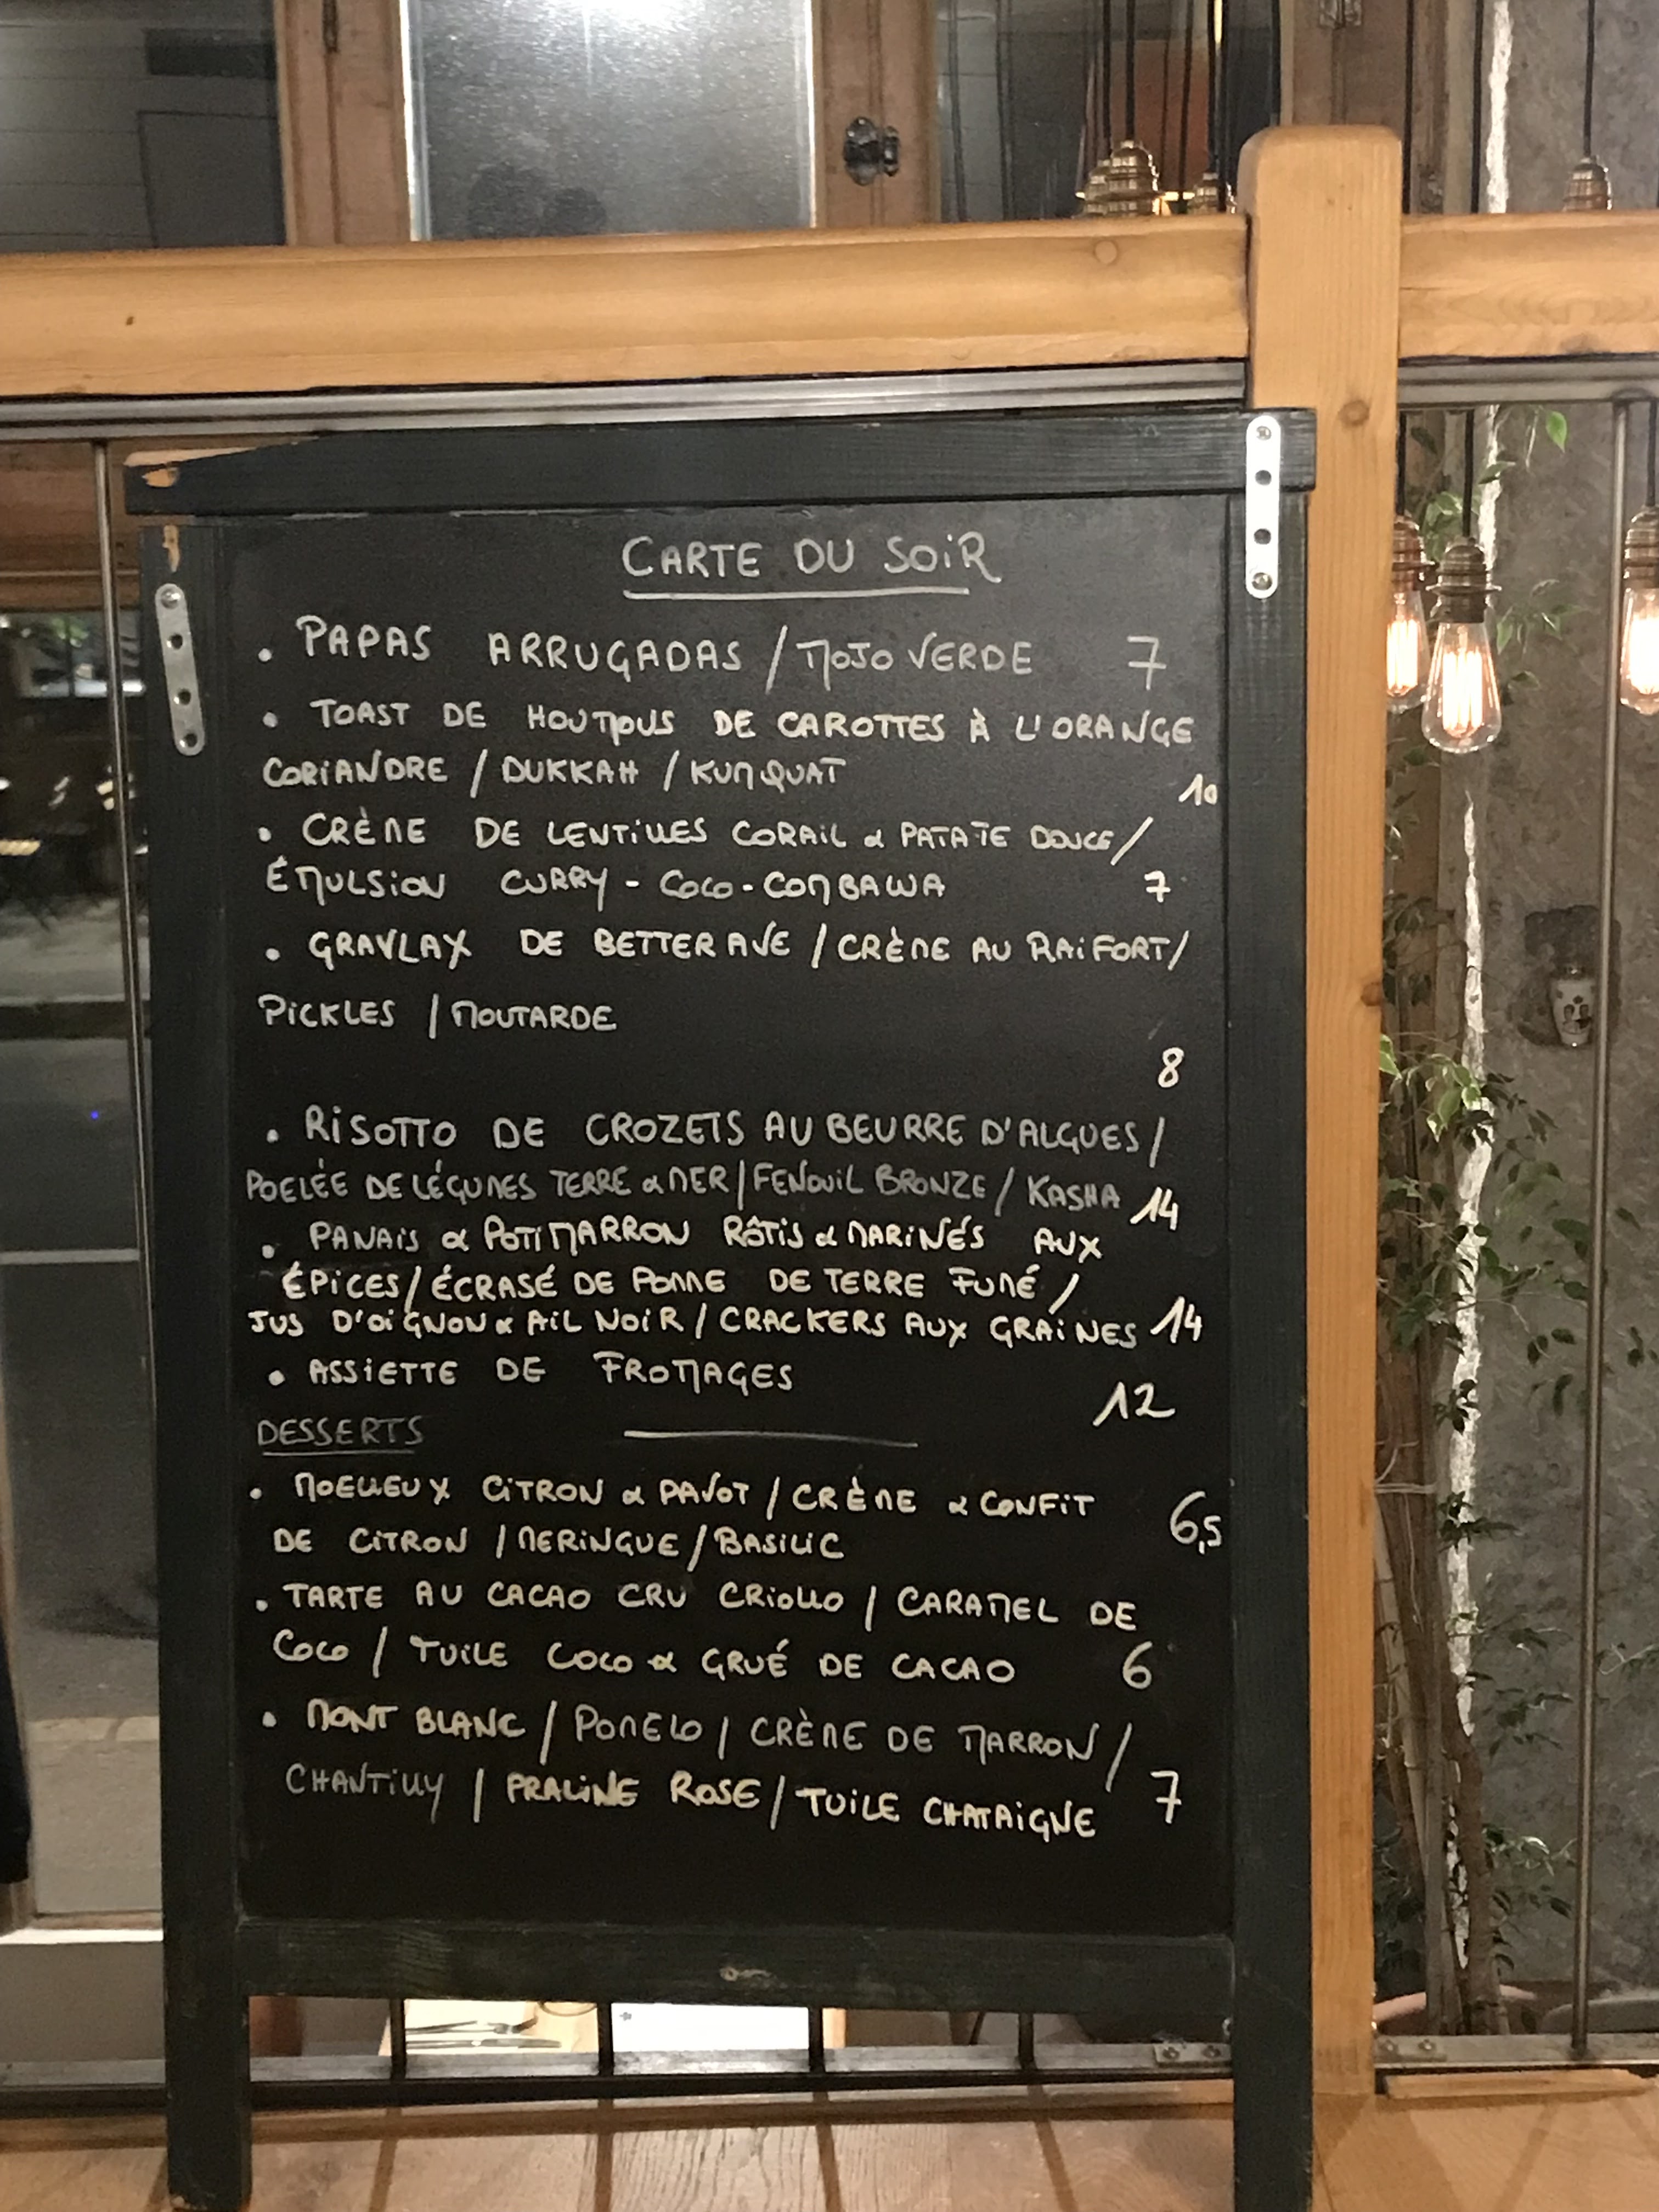 CARTE DU SOIR
• PAPAS ARRUGADAS / MOJO VERDE 7
• TOAST DE HOUMOUS DE CAROTTES À L'ORANGE
CORIANDRE / DUKKAH / KUMQUAT 10
• CRÈME DE LENTILLES CORAIL & PATATE DOUCE /
ÉMULSION CURRY - COCO - COMBAWA 7
• GRAVLAX DE BETTERAVE / CRÈME AU RAIFORT /
PICKLES / MOUTARDE
8
• RISOTTO DE CROZETS AU BEURRE D'ALGUES /
POELÉE DE LÉGUMES TERRE & MER / FENOUIL BRONZE / KASHA 14
• PANAIS & POTIMARRON RÔTIS & MARINÉS AUX
ÉPICES / ÉCRASÉ DE POMME DE TERRE FUMÉ /
JUS D'OIGNON & AIL NOIR / CRACKERS AUX GRAINES 14
• ASSIETTE DE FROMAGES 12
DESSERTS
• MOELLEUX CITRON & PAVOT / CRÈME & CONFIT 6,5
DE CITRON / MERINGUE / BASILIC
• TARTE AU CACAO CRU CRIOLLO / CARAMEL DE
COCO / TUILE COCO & GRUÉ DE CACAO 6
• MONT BLANC / POMELO / CRÈME DE MARRON /
CHANTILLY / PRALINE ROSE / TUILE CHATAIGNE 7